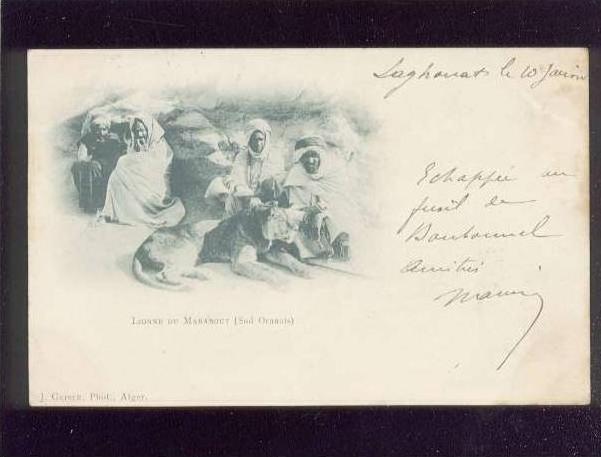 Laghouat le 10 Janvier
Echappée au
fusil de
Bombonnel
Amitiés
LIONNE DU MARABOUT (Sud Oranais)
J. GEISER, Phot., Alger.